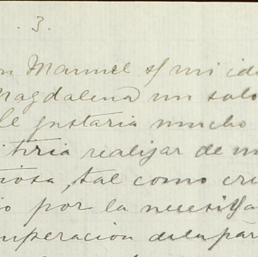 3.
n Manuel s/ mi ide
Magdalena un solo
le gustaria mucho
itiria realizar de m
iosa, tal como cre
io por la necesi
uperacion de la par